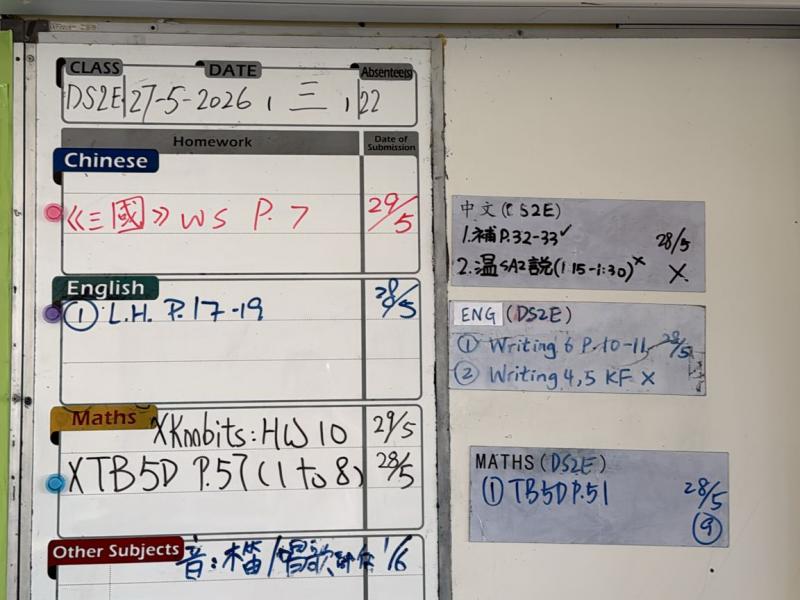 CLASS DATE Absentees
DS2E 27-5-2026, 三, 22
Homework Date of Submission
Chinese
《三國》WS P.7 29/5
English
① L.H. P.17-19 28/5
Maths
XKmbits: HW 10 29/5
XTB5D P.57 (1 to 8) 28/5
Other Subjects
音: 木笛/唱歌 1/6
中文 (DS2E)
1.補 P.32-33✓ 28/5
2.温 SA2 說 (1:15-1:30)× X
ENG (DS2E)
① Writing 6 P.10-11 28/5
② Writing 4,5 KF X
MATHS (DS2E)
① TB5D P.51 28/5
⑨